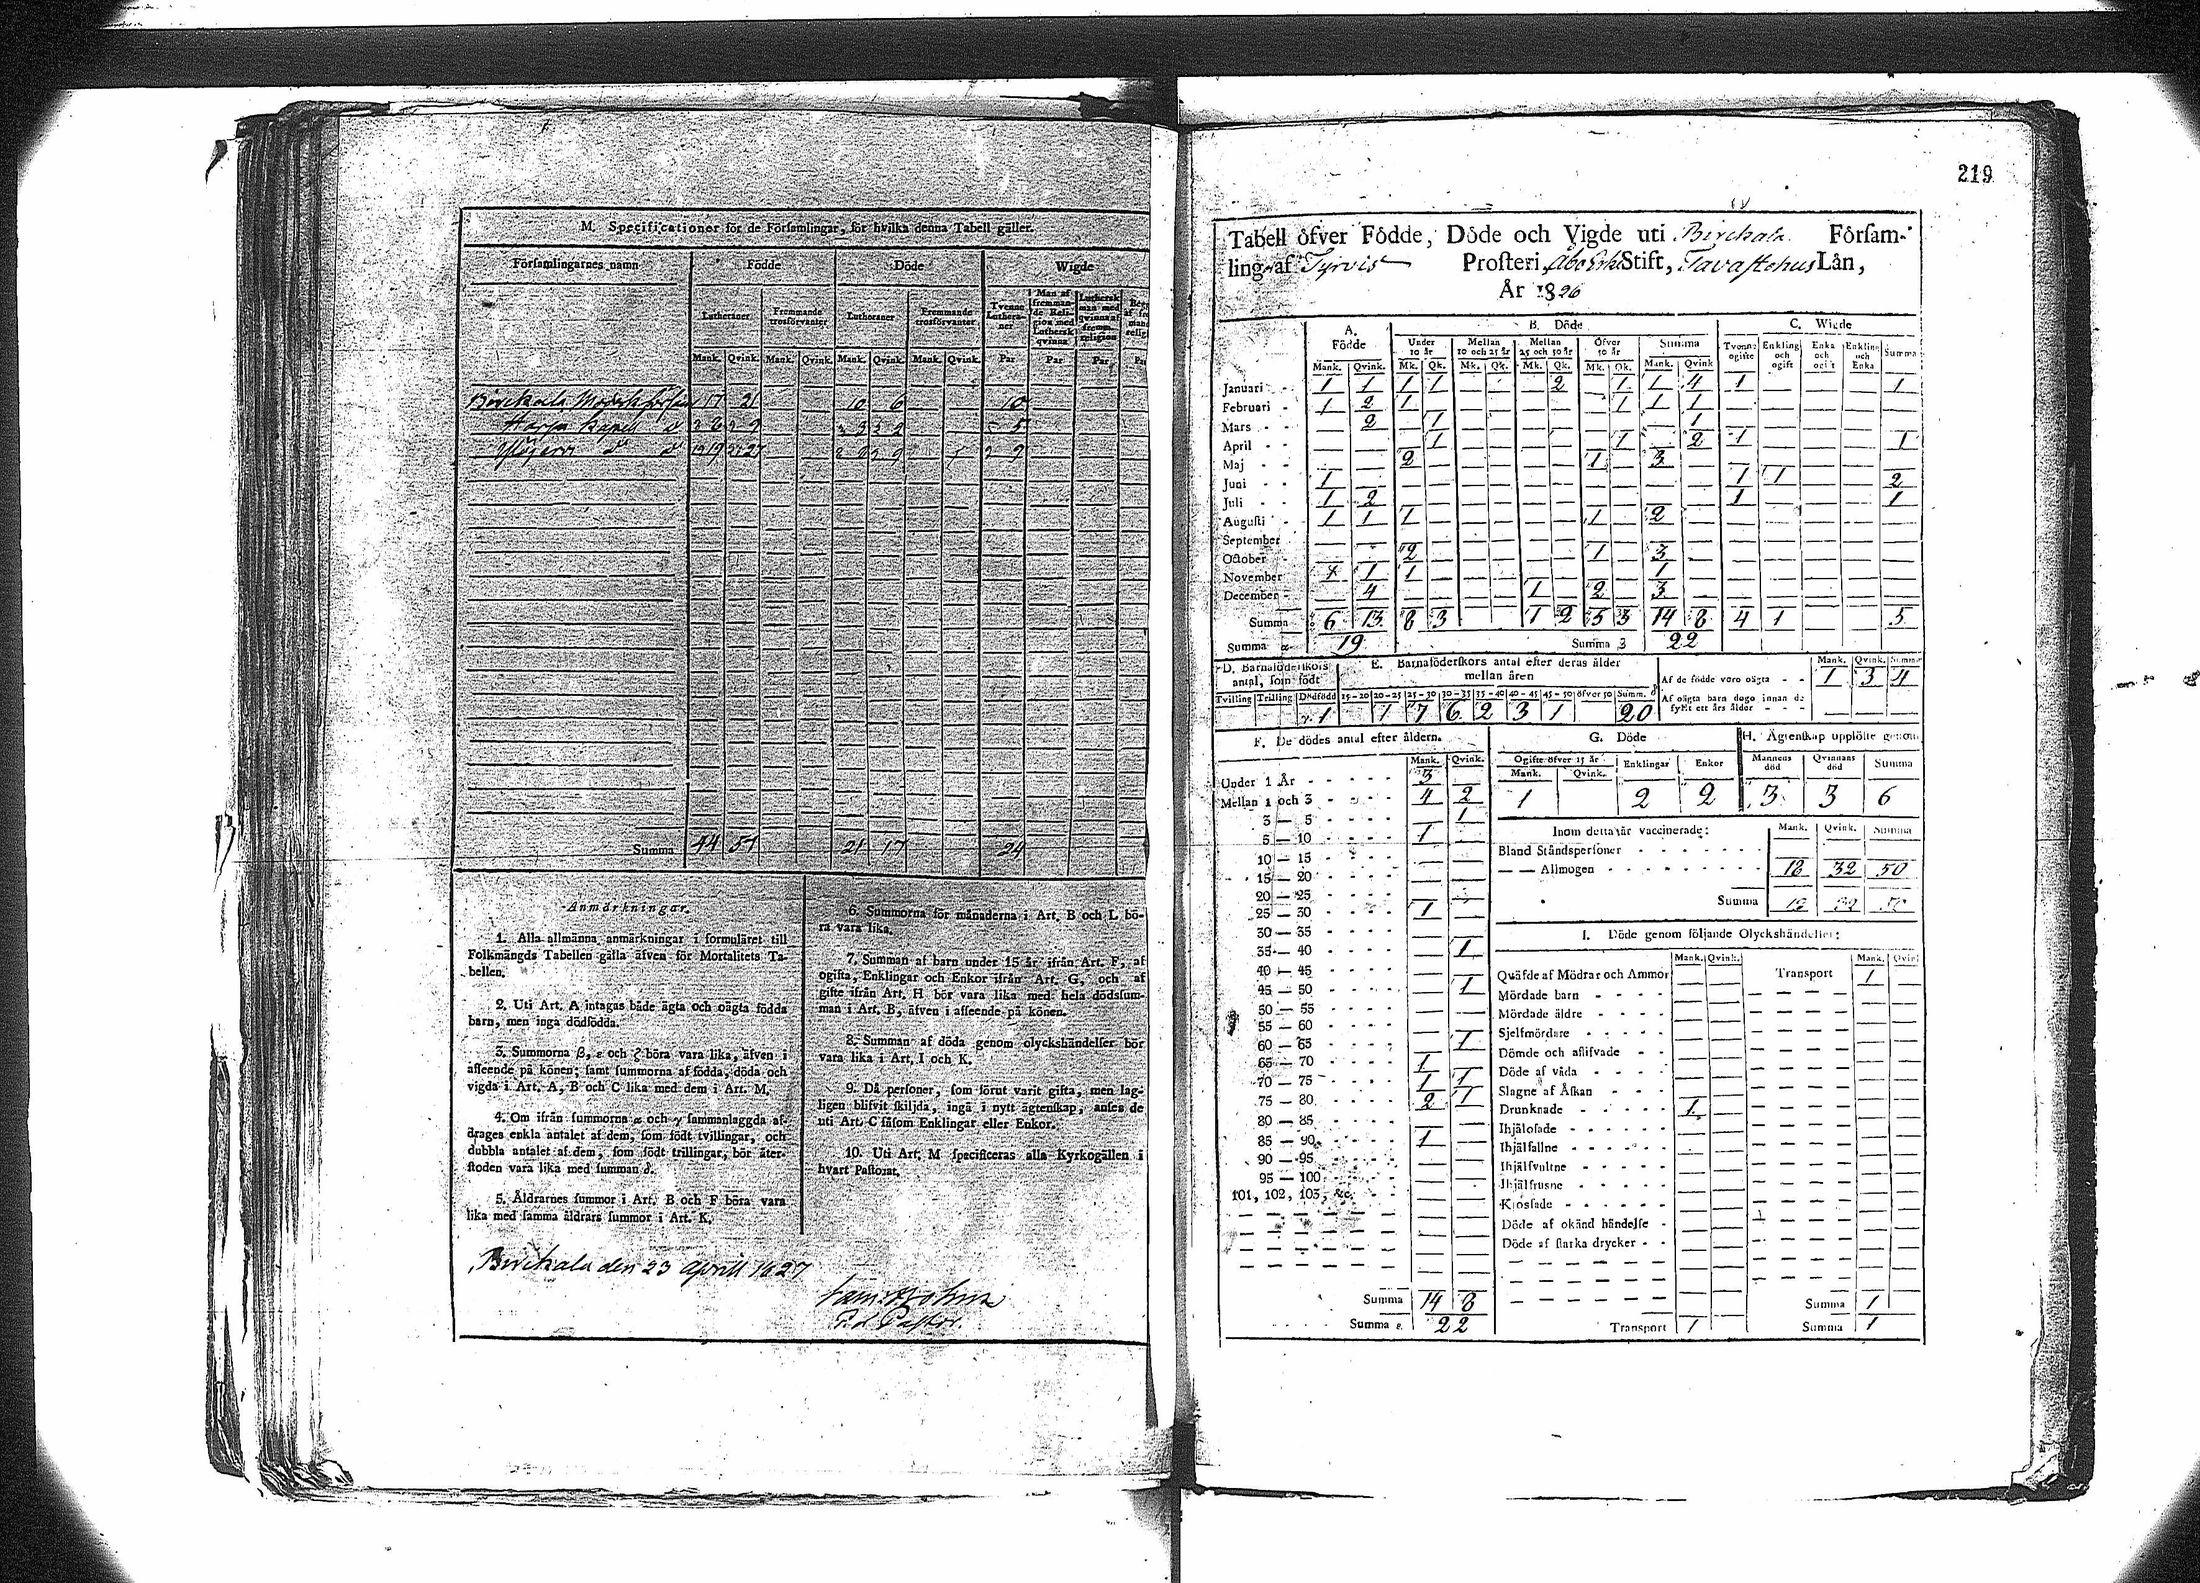 M. Specificationer för de Församlingar, för hvilka denna Tabell gäller.
Församlingarnes namn Födde Döde Wigde
Lutheraner Fremmande trosförvanter Lutheraner Fremmande trosförvanter Tvenne Lutheraner Man af fremmande Religion med Luthersk qvinna Luthersk man med qvinna af fremm. religion
Mank. Qvink. Mank. Qvink. Mank. Qvink. Mank. Qvink. Par Par Par
Birckala 17 21 10 6 10
Kapell 5
19 27 9
Summa 44 57 21 17 24
Anmärkningar.
1. Alla allmänna anmärkningar i formuläret till
Folkmängds Tabellen gälla äfven för Mortalitets Ta-
bellen.
2. Uti Art. A intagas både ägta och oägta födda
barn, men inga dödfödda.
3. Summorna β, ε och ζ böra vara lika, äfven i
afseende på könen; samt summorna af födda, döda och
vigda i Art. A, B och C lika med dem i Art. M.
4. Om ifrån summorna α och γ sammanlagda af-
drages enkla antalet af dem, som födt tvillingar, och
dubbla antalet af dem, som födt trillingar, bör åter-
stoden vara lika med summan δ.
5. Åldrarnes summor i Art. B och F böra vara
lika med samma åldrars summor i Art. K.
6. Summorna för månaderna i Art. B och L bö-
ra vara lika.
7. Summan af barn under 15 år ifrån Art. F, af
ogifta, Enklingar och Enkor ifrån Art. G, och af
gifte ifrån Art. H bör vara lika med hela dödssum-
man i Art. B, äfven i afseende på könen.
8. Summan af döda genom olyckshändelser bör
vara lika i Art. I och K.
9. Då personer, som förut varit gifta, men lag-
ligen blifvit skiljda, ingå i nytt ägtenskap, anses de
uti Art. C såsom Enklingar eller Enkor.
10. Uti Art. M specificeras alla Kyrkogällen i
hvart Pastorat.
Birckala den 23 Aprill 1827
Pastor.
219
Tabell öfver Födde, Döde och Vigde uti Birckala Försam-
ling af Tyrvis Prosteri, Åbo Stift, Tavastehus Län,
År 1826
A. Födde B. Döde C. Wigde
Under 10 år Mellan 10 och 25 år Mellan 25 och 50 år Öfver 50 år Summa Tvenne ogifte Enkling och ogift Enka och ogift Enkling och Enka Summa
Mank. Qvink. Mk. Qk. Mk. Qk. Mk. Qk. Mk. Qk. Mank. Qvink
Januari 1 1 1 1 — — — 2 — 1 1 4 1 — — — 1
Februari 1 2 1 — — — — — — 1 1 1 — — — — —
Mars — 2 — 1 — — — — — — — 1 — — — — —
April — — — 1 — — — — — 1 — 2 1 — — — 1
Maj — — 2 — — — — — 1 — 3 — — — — — —
Juni 1 — — — — — — — — — — — 1 1 — — 2
Juli 1 2 — — — — — — — — — — 1 — — — 1
Augusti 1 1 1 — — — — — 1 — 2 — — — — — —
September — — — — — — — — — — — — — — — — —
October — — 2 — — — — — 1 — 3 — — — — — —
November 1 1 — — — — — — — 1 — — — — — —
December — 4 — — — — 1 — 2 — 3 — — — — — —
Summa 6 13 8 3 1 2 5 3 14 8 4 1 — — 5
Summa α 19 Summa β 22
D. Barnaföderskors antal, som födt E. Barnaföderskors antal efter deras ålder mellan åren
Tvilling Trilling Dödfödd 15-20 20-25 25-30 30-35 35-40 40-45 45-50 öfver 50 Summ. δ
γ. 1 1 7 6 2 3 1 20
Mank. Qvink. Summa
Af de födde voro oägta - - 1 3 4
Af oägta barn dogo innan de
fyllt ett års ålder — — —
F. De dödes antal efter åldern.
Mank. Qvink.
Under 1 År 3
Mellan 1 och 3 4 2
3 — 5 — 1
5 — 10 1 —
10 — 15 — —
15 — 20 — —
20 — 25 — —
25 — 30 1 —
30 — 35 — —
35 — 40 — 1
40 — 45 — —
45 — 50 — 1
50 — 55 — —
55 — 60 — —
60 — 65 — 1
65 — 70 1 —
70 — 75 1 1
75 — 80 2 1
80 — 85 — —
85 — 90 1 —
90 — 95 — —
95 — 100 — —
101, 102, 103, &c. — —
Summa 14 8
Summa ε. 22
G. Döde H. Ägtenskap upplöste genom
Ogifte öfver 15 år Enklingar Enkor Mannens död Qvinnans död Summa
Mank. Qvink.
1 2 2 3 3 6
Inom detta år vaccinerade: Mank. Qvink. Summa
Bland Ståndspersoner
— — Allmogen 18 32 50
Summa 18 32 50
I. Döde genom följande Olyckshändelser:
Mank. Qvink. Mank. Qvink
Quäfde af Mödrar och Ammor — — Transport 1 —
Mördade barn — —
Mördade äldre — —
Sjelfmördare — —
Dömde och aflifvade — —
Döde af våda — —
Slagne af Åskan — —
Drunknade 1 —
Ihjälosade — —
Ihjälfallne — —
Ihjälsvultne — —
Ihjälfrusne — —
Krossade — —
Döde af okänd händelse — —
Döde af starka drycker — —
Summa 1
Transport 1 Summa 1